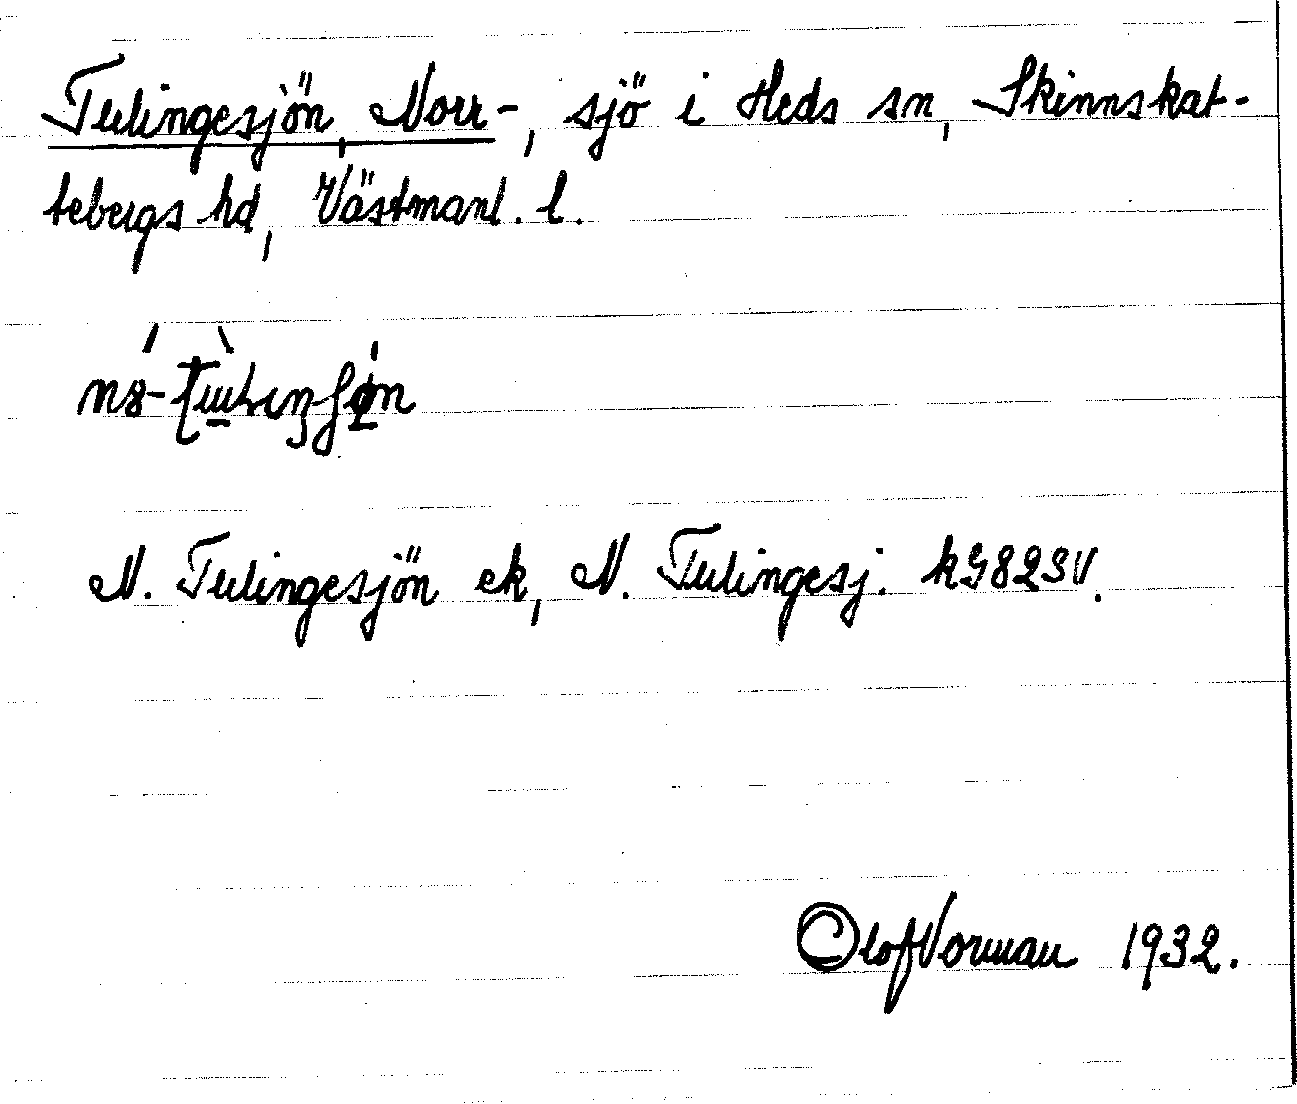 Tulingesjön, Norr-, sjö i Heds sn, Skinnskat-
tebergs hd, Västmanl. l.
N. Tulingesjön ek, N. Tulingesj. kG82SV.
Olof Norman 1932.